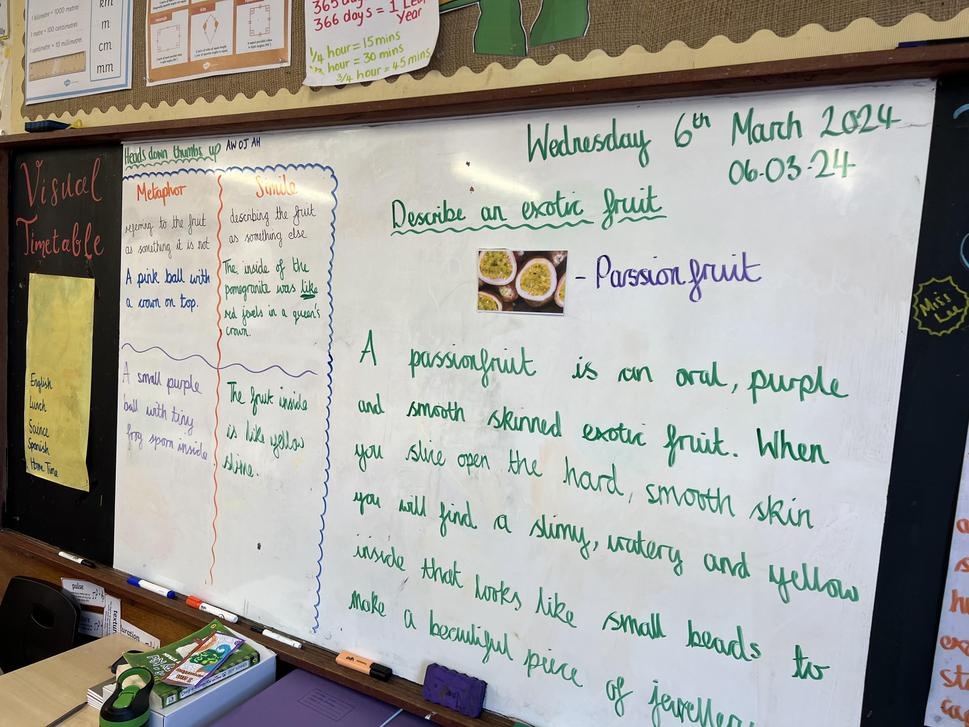 1 kilometre = 1000 metres
1 metre = 100 centimetres
1 centimetre = 10 millimetres
km
m
cm
mm
365 days
366 days = 1 Leap Year
1/4 hour = 15 mins
1/2 hour = 30 mins
3/4 hour = 45 mins
Visual
Timetable
English
Lunch
Science
Spanish
Home Time
Heads down thumbs up AW OJ AH
Metaphor
referring to the fruit
as something it is not
A pink ball with
a crown on top.
A small purple
ball with tiny
frog sporn inside
Simile
describing the fruit
as something else
The inside of the
pomegranite was like
red jewels in a queen's
crown.
The fruit inside
is like yellow
slime.
Wednesday 6th March 2024
06.03.24
Describe an exotic fruit
- Passionfruit
A passionfruit is an oral, purple
and smooth skinned exotic fruit. When
you slice open the hard, smooth skin
you will find a slimy, watery and yellow
inside that looks like small beads to
make a beautiful piece of jewellery
Miss
Lee